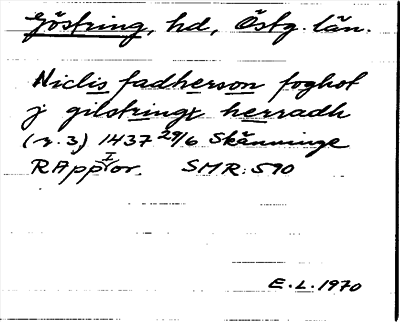 Göstring, hd, Östg. län.
Niclis fadherson foghot
j gilstringx herradh
(r. 3) 1437 29/6 Skänninge
RApp or. SMR: 590
E.L. 1970